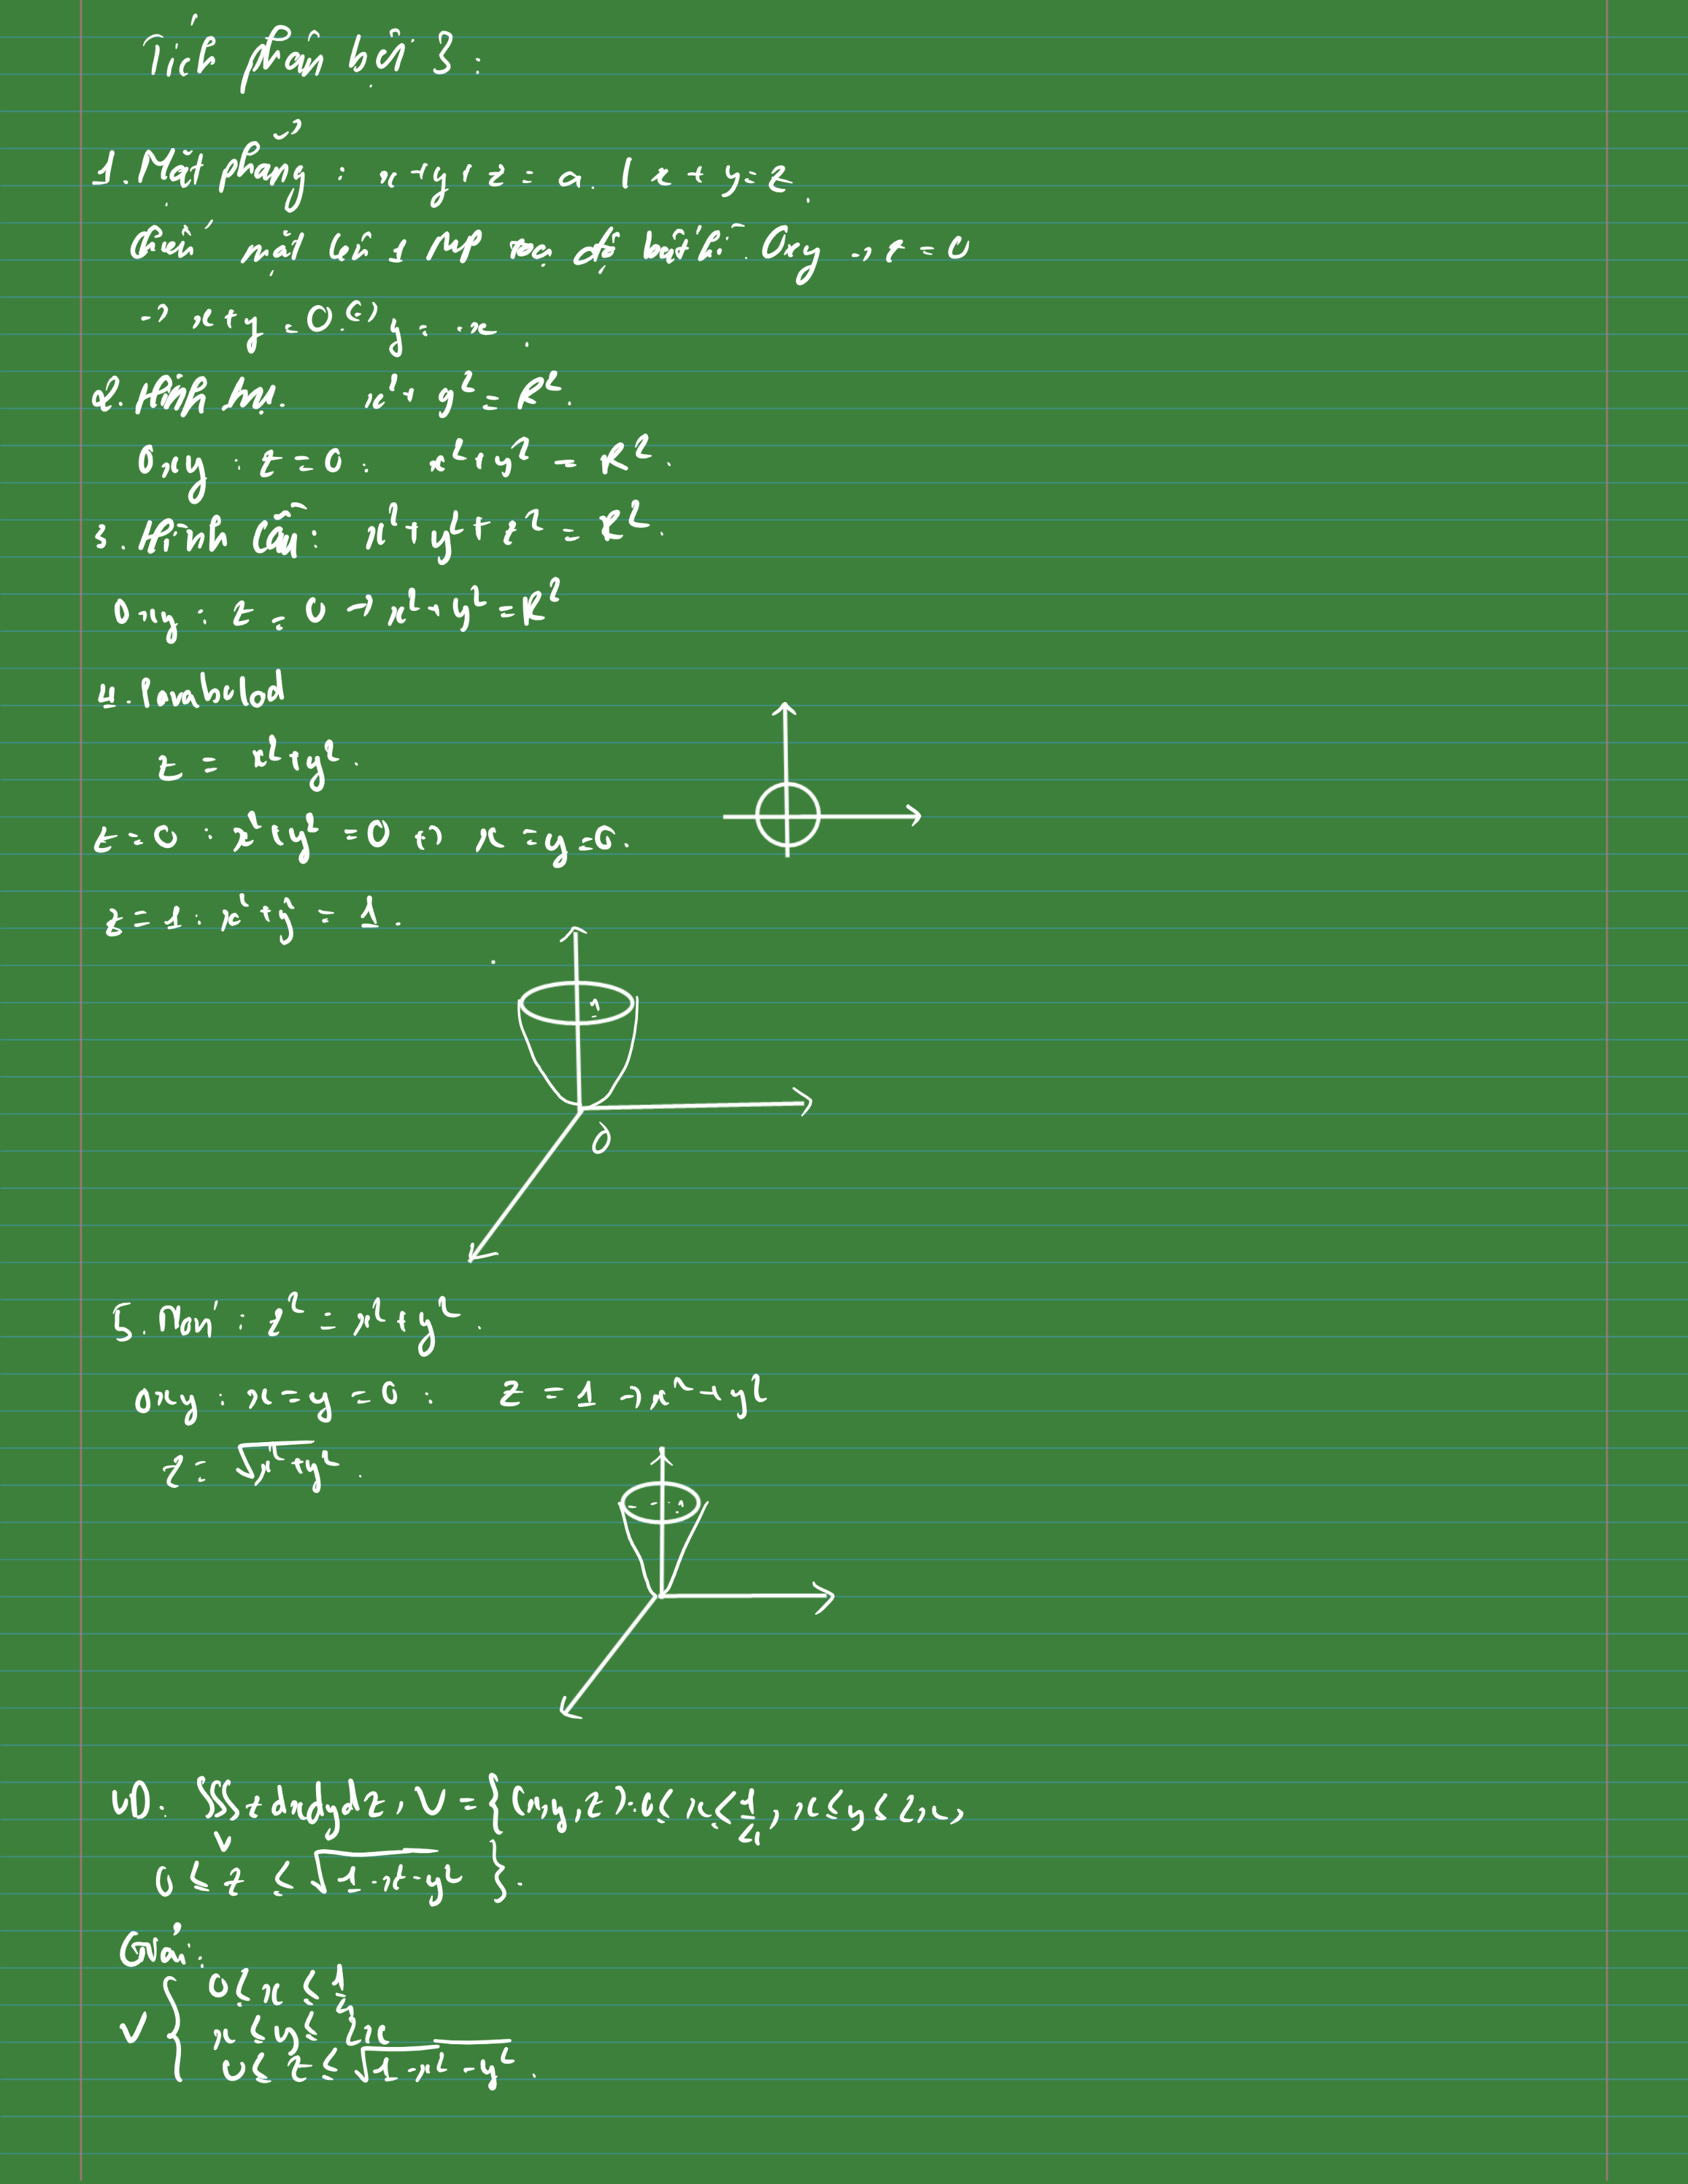 Tích phân bội 3:
1. Mặt phẳng: x+y+z=a. | x+y=z.
Chiếu mặt lên 1 MP toạ độ bất kì: Oxy -> z=0
-> x+y=0 <=> y=-x.
2. Hình trụ. x²+y²=R².
Oxy: z=0: x²+y²=R².
3. Hình cầu: x²+y²+z²=R².
Oxy: z=0 -> x²+y²=R²
4. Paraboloid
z = x²+y².
z=0: x²+y²=0 x=y=0.
z=1: x²+y²=1.
1
O
5. Nón: z²=x²+y².
Oxy: x=y=0: z=1 -> x²+y²
z=√x²+y².
1
VD. ∭ z dxdydz, V={(x,y,z): 0≤x≤1/4, x≤y≤2x,
V
0≤z≤√1-x²-y² }.
Giải:
V { 0≤x≤1/4
x≤y≤2x
0≤z≤√1-x²-y².